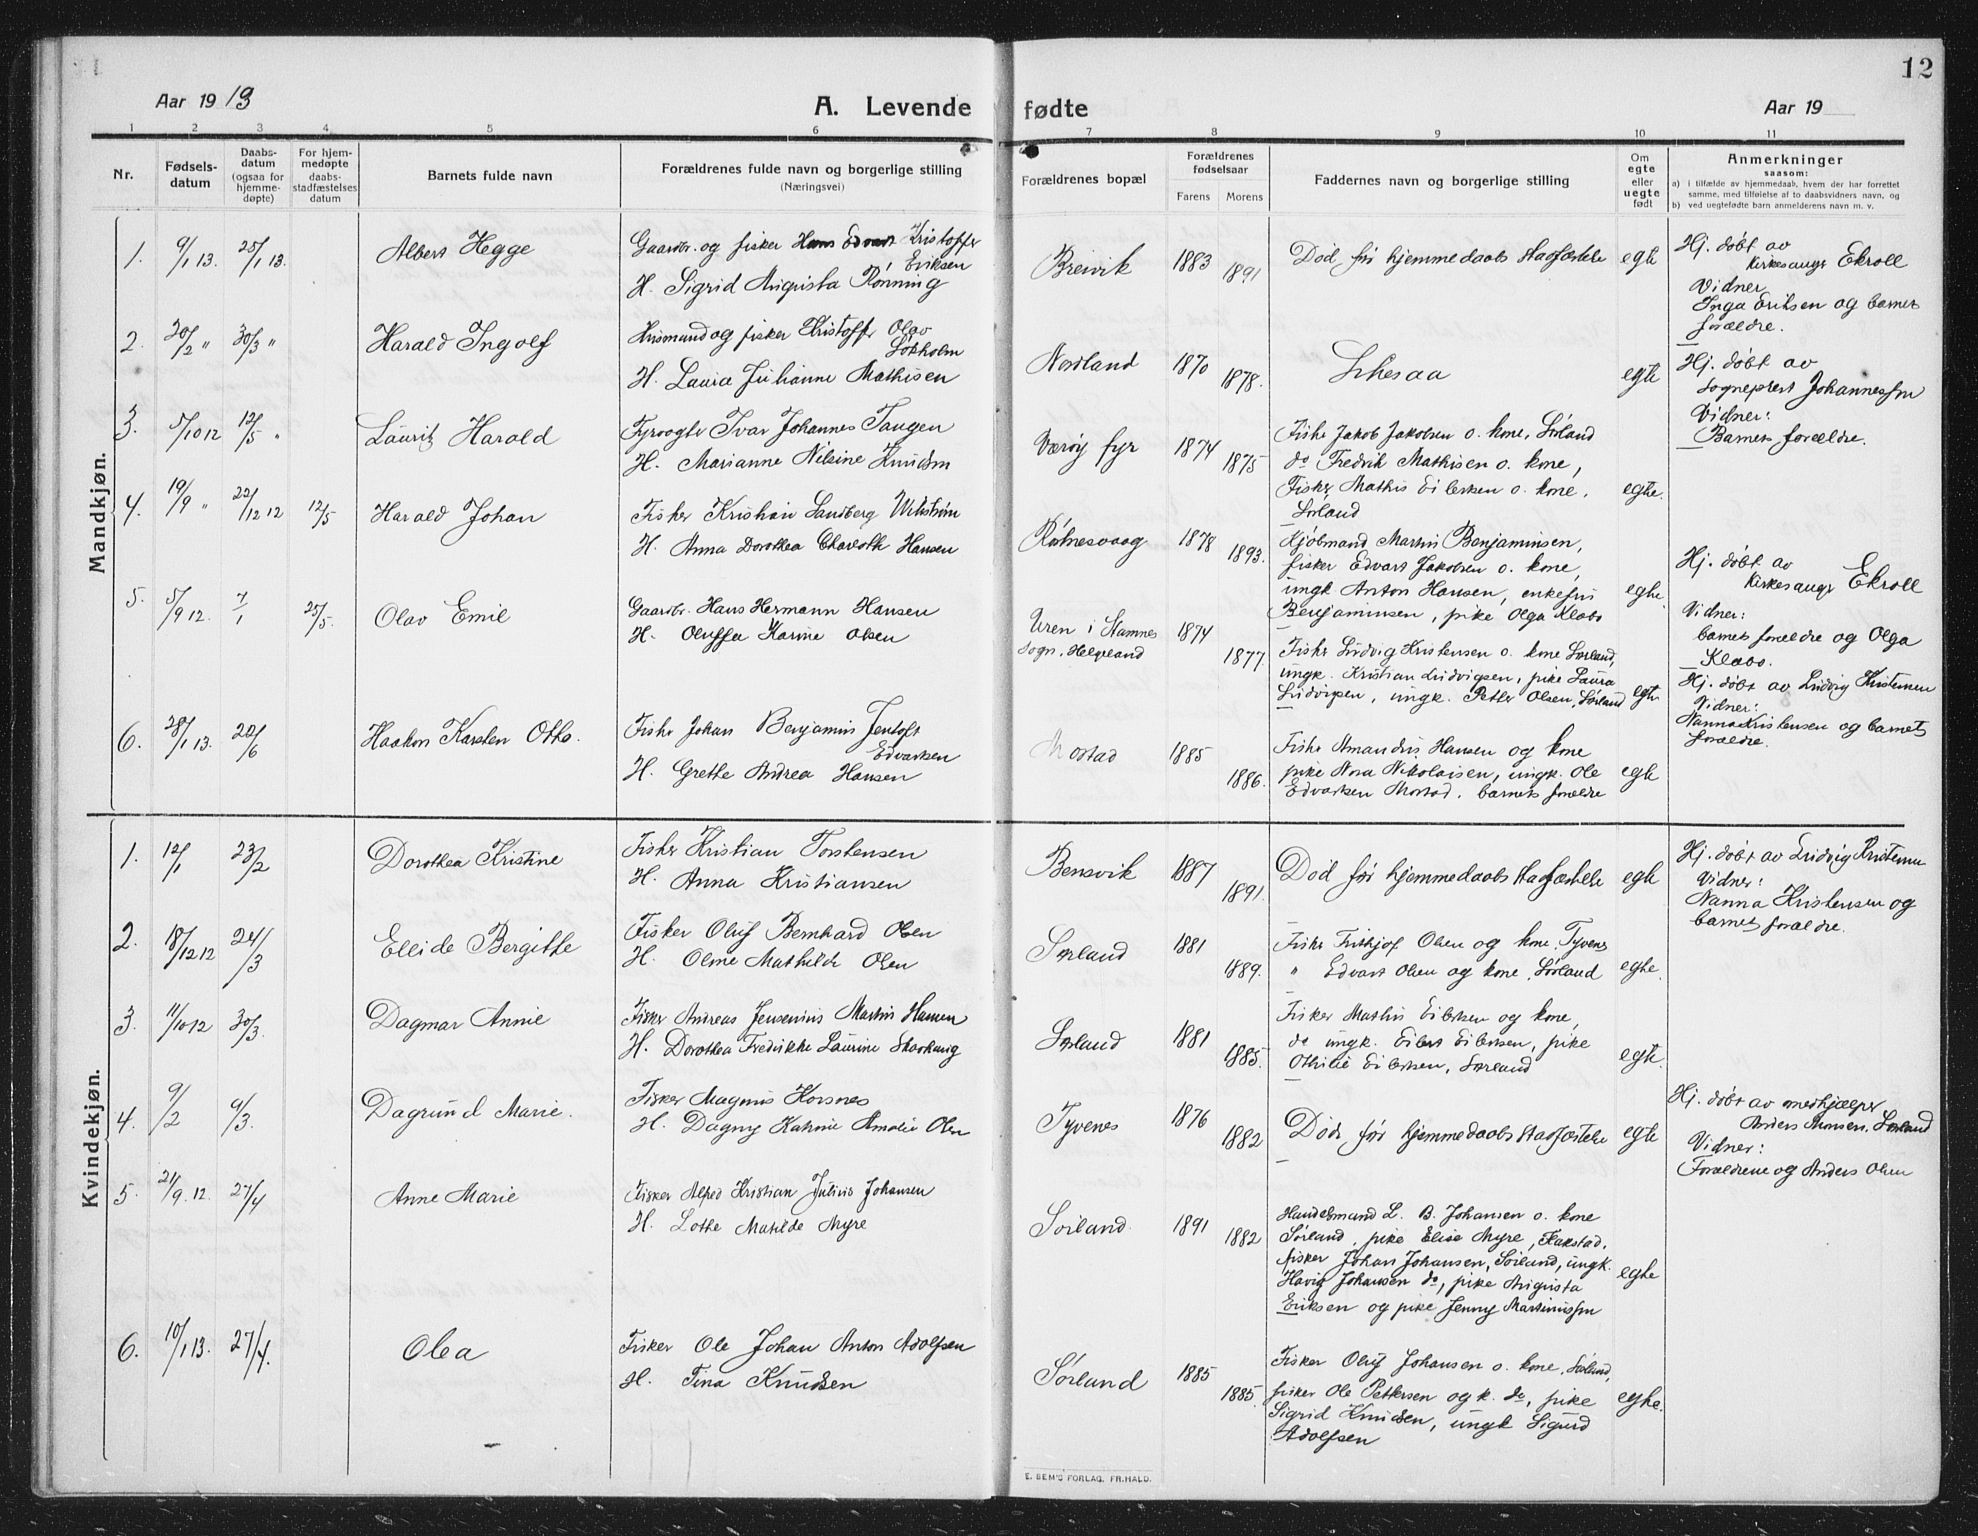 12
Aar 1913
A. Levende fødte
Aar 19
1 2 3 4 5 6 7 8 9 10 11
Nr.
Fødsels-
datum
Daabs-
datum
(ogsaa for
hjemme-
døpte)
For hjem-
medøpte
daabs-
stadfæstelses
datum
Barnets fulde navn
Forældrenes fulde navn og borgerlige stilling
(Næringsvei)
Forældrenes bopæl
Forældrenes
fødselsaar
Farens Morens
Faddernes navn og borgerlige stilling
Om
egte
eller
uegte
født
Anmerkninger
saasom:
a) i tilfælde av hjemmedaab, hvem der har forrettet
samme, med tilføielse af to daabsvidners navn, og
b) ved uegtefødte barn anmelderens navn m. v.
Mandkjøn.
1. 9/1 13. 25/1 13. Albert Hegge
Gaardbr. og fisker Hans Edvart Kristoffer
Eriksen
H. Sigrid Augusta Rønning
Breivik 1883 1891
Død før hjemmedaabs stadfæstelse egte
Hj. døbt av
Kirkesanger Ekroll
Vidner
Inga Eriksen og barnets
forældre.
2. 20/2 " 30/3 " Harald Ingolf
Husmand og fisker Kristoffer Olav
Sørholm
H. Laura Julianne Mathisen
Nordland 1870 1878.
Likesaa egte
Hj. døbt av
Sogneprest Johannessen
Vidner:
Barnets forældre.
3. 5/10 12 12/5 " Lauritz Harald
Fyrvogter Ivar Johannes Tangen
H. Marianne Nilsine Knudsen
Værøy fyr 1874 1875
Fisker Jakob Jakobsen o. kone, Sørland
do Fredrik Mathisen o. kone,
Fisker Mathis Eilersen o. kone.
Sørland
egte.
4. 19/9 " 22/12 12 12/5 Harald Johan
Fisker Kristian Sandberg Wikstrøm
H. Anna Dorothea Hansen
Røsnesvaag 1878 1893.
Kjøbmand Martin Benjaminsen,
fisker Edvart Jakobsen o. kone,
ungk Anton Hansen, enkefru
Benjaminsen, pike Olga Klabo
egte.
Hj. døbt av
Kirkesanger Ekroll
Vidner:
barnets forældre og Olga
Klabo.
5. 5/9 12. 7/1 25/5. Olav Emil
Gaardbr. Hans Hermann Hansen
H. Oluffa Karine Olsen
Uren i Stamnes
Sogn, Helgeland 1874 1877.
Fisker Ludvig Kristensen o. kone Sørland,
ungk. Kristian Ludvigsen, pike Laura
Ludvigsen, ungk. Petter Olsen, Sørland
egte
Hj. døbt av Ludvig Kristensen
Vidner:
Nanna Kristensen og barnets
forældre.
6. 28/1 13. 22/6 Haakon Karsten Otto.
Fisker Johan Benjamin Jentoft
Edvartsen
H. Grethe Andrea Hansen
Mostad 1885 1886.
Fisker Amandus Hansen og kone
pike Nora Nikolaisen, ungk. Ole
Edvartsen Mostad. barnets forældre
egte
Kvindekjøn.
1. 12/1 23/2 Dorothea Kristine
Fisker Kristian Torstensen
H. Anna Kristiansen
Bensvik 1887 1891.
Død før hjemmedaabs stadfæstelse egte
Hj. døbt av Ludvig Kristensen
Vidner:
Nanna Kristensen og
barnets forældre.
2. 18/12 12 24/3 Ellide Bergitte
Fisker Oluf Bernhard Olsen
H. Oline Mathilde Olsen
Sørland 1881 1889.
Fisker Fritjof Olsen og kone, Tyvenes
" Edvart Olsen og kone, Sørland
egte.
3. 11/10 12 30/3. Dagmar Annie
Fisker Andreas Jensenius Martin Hansen
H. Dorothea Fredrikke Laurine
Sørland 1881 1885.
Fisker Mathis Eilertsen og kone,
do ungk. Eilert Eilertsen, pike
Othilie Eilertsen, Sørland
egte.
4. 9/2 9/3. Dagrund Marie.
Fisker Magnus Korsnes
H. Dagny Katrine Amalie Olsen
Tyvenes 1876 1882
Død før hjemmedaabs stadfæstelse egte
Hj. døbt av medhjælper
Anders Monsen, Sørland
Vidner:
Forældrene og Anders Olsen
5. 21/9. 12. 27/4 Anne Marie
Fisker Alfred Kristian Julius Johansen
H. Lothe Matilde Myre
Sørland. 1891 1882
Handelsmand L. B. Johansen o. kone
Sørland, pike Elise Myre, Flakstad.
fisker Johan Johansen, Sørland, ungk.
Johansen do, pike Augusta
Eriksen og pike Jenny Martinussen
egte
6. 10/1 13. 27/4. Olea
Fisker Ole Johan Anton Adolfsen
H. Tina Knudsen
Sørland 1885 1885.
Fisker Oluf Johansen o. kone, Sørland,
fisker Ole Pettersen og k. do, pike
Sigrid Knudsen, ungk Sigurd
Adolfsen
egte.
E. SEM'S FORLAG, FR.HALD.